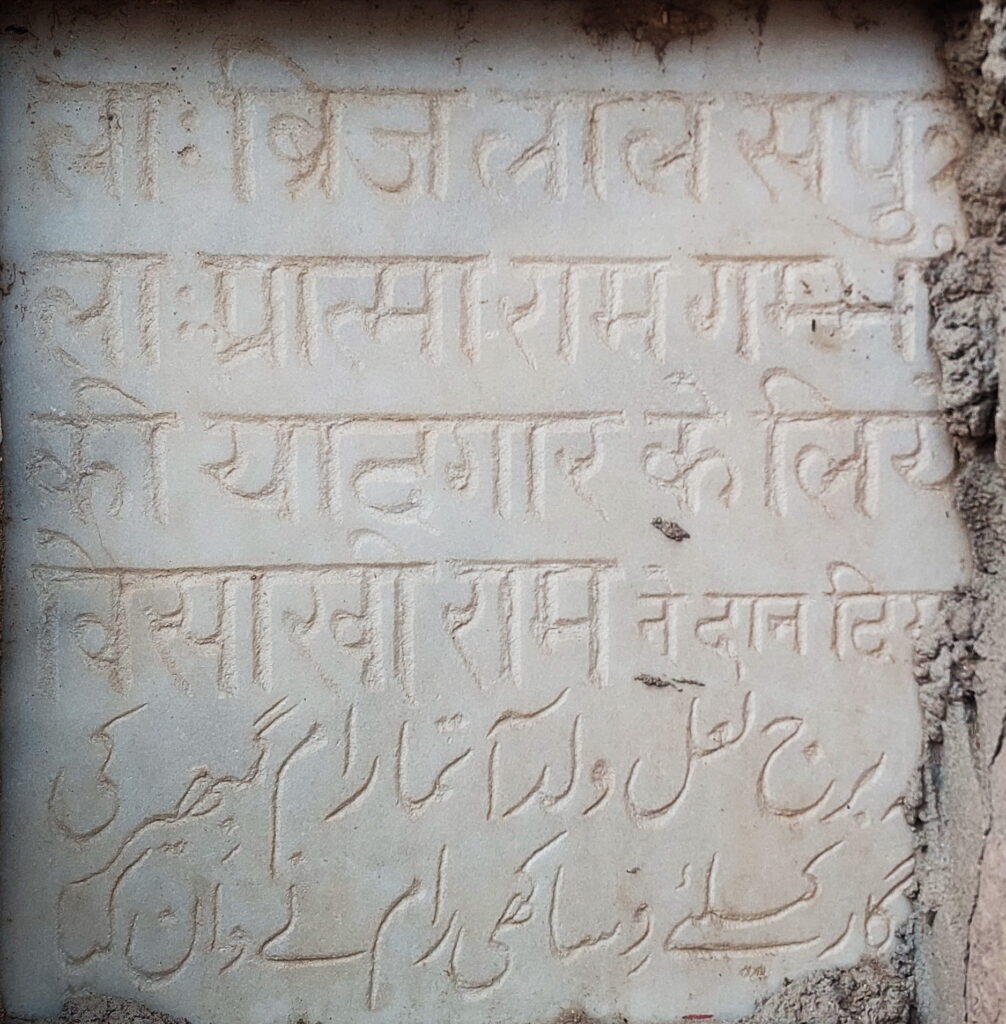 ला: ब्रिज लाल सपुत्र
ला: प्रात्मा राम
की यादगार के लिये
विसाखी राम ने दान दिया
برج لعل ولد آتما رام گمبھیر کی
گار کیلئے وساکھی رام نے دان کیا